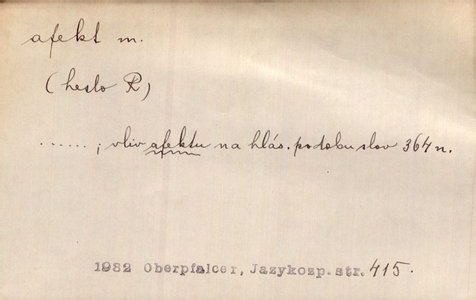 afekt m.
(heslo R)
......; vliv afektu na hlás. podobu slov 364 n.
1932 Oberpfalcer, Jazykozp. str. 415.